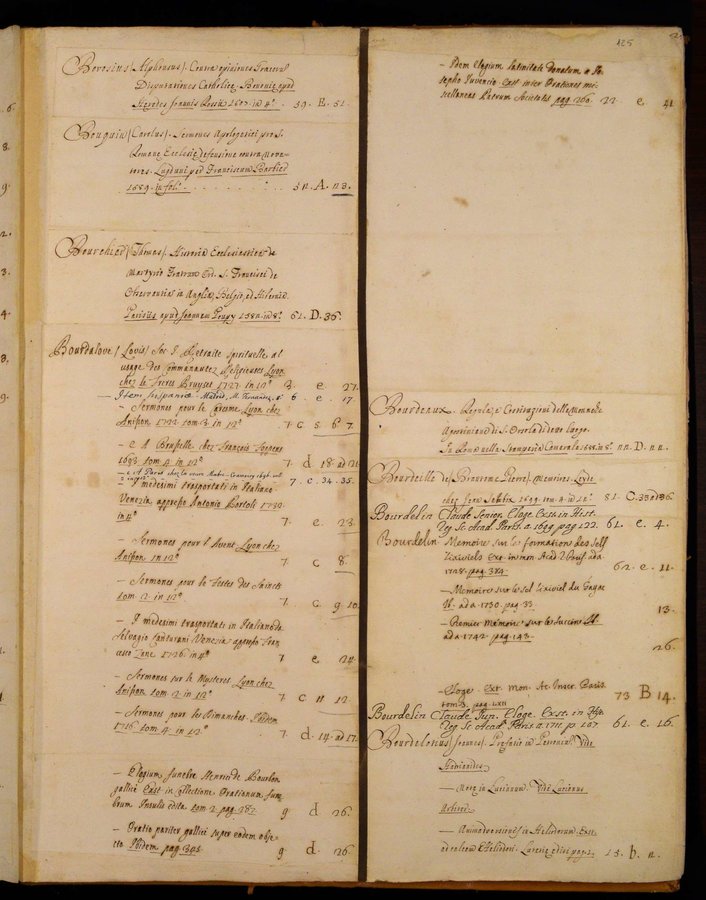 Bovosius (Alphonsus). Contra opiniones
Disputationes Catholicæ, Bononiæ apud
Hæredes Joannis Rossii 1607. in 4° . 59. E. 51.
Bouquin (Carolus). Sermones Apologetici pro S.
Romanæ Ecclesiæ defensione contra Nova-
tores. Lugduni per Franciscum
1589. in fol. . . . . A. 23.
Bourchier (Thomas). Historia Ecclesiastica de
Martyrio Fratrum Ord. S. Francisci de
Observantia in Anglia, Belgio, et Hibernia.
Parisiis apud Joannem Poupy 1582. in 8° 61. D. 36.
Bourdaloue (Louis) Soc. J. Retraite spirituelle al
usage des Communautez Religieuses Lyon
chez le Freres Bruyset 1727. in 12° 3. e 27.
— Item Hispanice. Madrid, M. Fernandez, 8° 6. e. 17.
— Sermones pour le Careme Lyon chez
Anisson 1722. tom. 3. in 12° 7. c 5 6 7.
— e A Bruxelle chez François Foppens
1693 tom. 4. in 12° 7 d 18. ad 21.
7. c. 34. 35.
I medesimi trasportati in Italiano
Venezia appresso Antonio Bortoli
in 4° 7. e. 23
— Sermones pour l'Avent Lyon chez
Anisson in 12° 7. c 8.
— Sermones pour le Festes des Saincts
tom. 2. in 12° 7. c 9 10.
— I medesimi trasportati in Italiano da
Selvagio Canturani Venezia appresso Fran
cesco Zane 1726. in 4° 7. e 24.
— Sermones sur le Mysteres Lyon chez
Anisson tom 2 in 12° 7. c 11 12.
— Sermones pour les Dimanches. Ibidem
1716 tom. 4. in 12° 7. d. 14. ad 17.
— Elogium funebre Henrici de Bourbon
gallice Exst. in Collectione Orationum fune
brum Insulis edita tom. 2. pag. 287. 9 d 26.
— Oratio pariter gallica super eodem obje
cto Ibidem pag. 9 d. 26
125
— Idem Elogium latinitate donatum a Jo
sepho Juvencio. Exst. inter Orationes mi
scellaneas Patrum Societatis pag. 260. 22. e. 41
Bourdeaux. Regula, e Costituzioni delle Monache
Agostiniane di S. Orsola di detto luogo.
In Roma nella Stamperia Camerale D.
Bourdeille (de) Brantome Pierre). Memoires. Leyde
chez Jean Sambix 1699. tom. 51. C.
Bourdelin Claude Senior. Eloge. Exst. in Hist.
Reg. Sc. Acad. Paris. a. 1699. pag 122. 61. e. 4.
Bourdelin. Memoire sur la formation des Sels
lixiviels Ext. in mon. Acad. R. Paris. ad a.
1728. pag. 384. 62. e. 11.
— Memoire sur le sel lixiviel du Gayac
Ib. ad a. 1730. pag. 33. 13.
— Premier Memoire sur le Succin Ib.
ad a 1742. pag. 143. 26.
— Eloge. Ext. mon. Ac. Paris
tom 3. pag. LXII 73 B 14.
Bourdelin Claude Jun. Eloge. Exst. in Hist.
Reg. Sc. Acad. Paris. a. 1711. p. 107 61. e. 16.
Bourdelotius (Joannes). Præfatio in Petronium. Vide
— Notæ in Lucianum. Vide Lucianus
— Animadversiones in Heliodorum. Exst.
ad calcem Heliodori. Lutetiæ editi pag. 1. 15. b. 2.